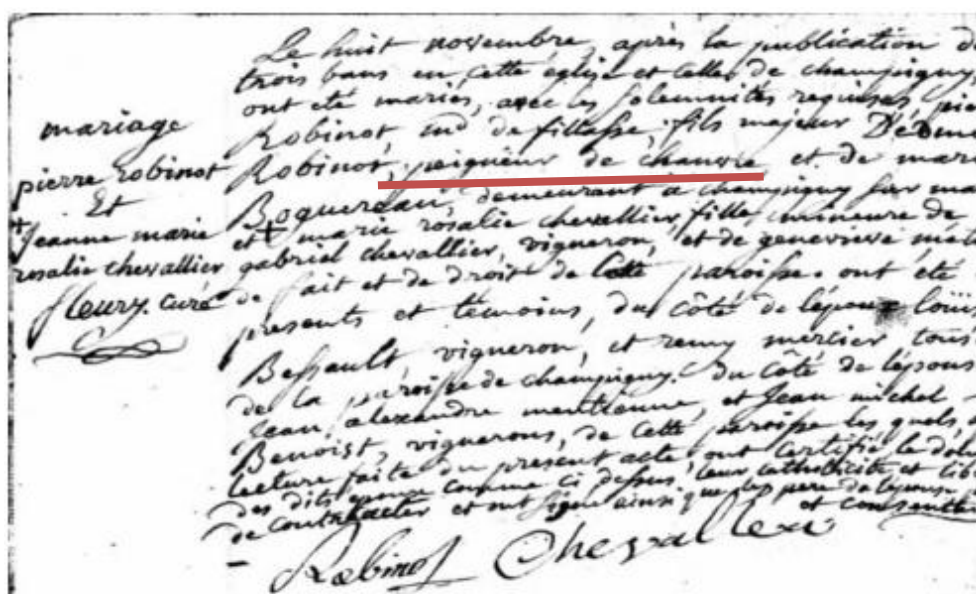 mariage
pierre robinot
Et
+ Jeanne marie
rosalie chevallier
fleury. curé
Le huit novembre, après la publication d
trois bans en cette église et celle de champigny
ont été mariés, avec les solemnités requises pie
Robinot, md de fillasse, fils majeur
Robinot, peigneur de chanvre et de mari
Boquereau, demeurant à champigny sur ma
et + marie rosalie chevallier, fille mineure de
gabriel chevallier, vigneron, et de geneviève
de fait et de droit de cette paroisse. ont été
presents et témoins, du côté de lépoux loüis
Bessault, vigneron, et remy mercier tous
de la paroisse de champigny. du côté de lépous
Jean alexandre mentienne, et Jean michel
Benoist, vignerons, de cette paroisse les quels,
lecture faite du présent acte, ont certifié le
des dits epoux comme ci dessus, leur catholicité et lib
de contracter et ont signé ainsi que les pere de lépouse
et
Robinot Chevallier